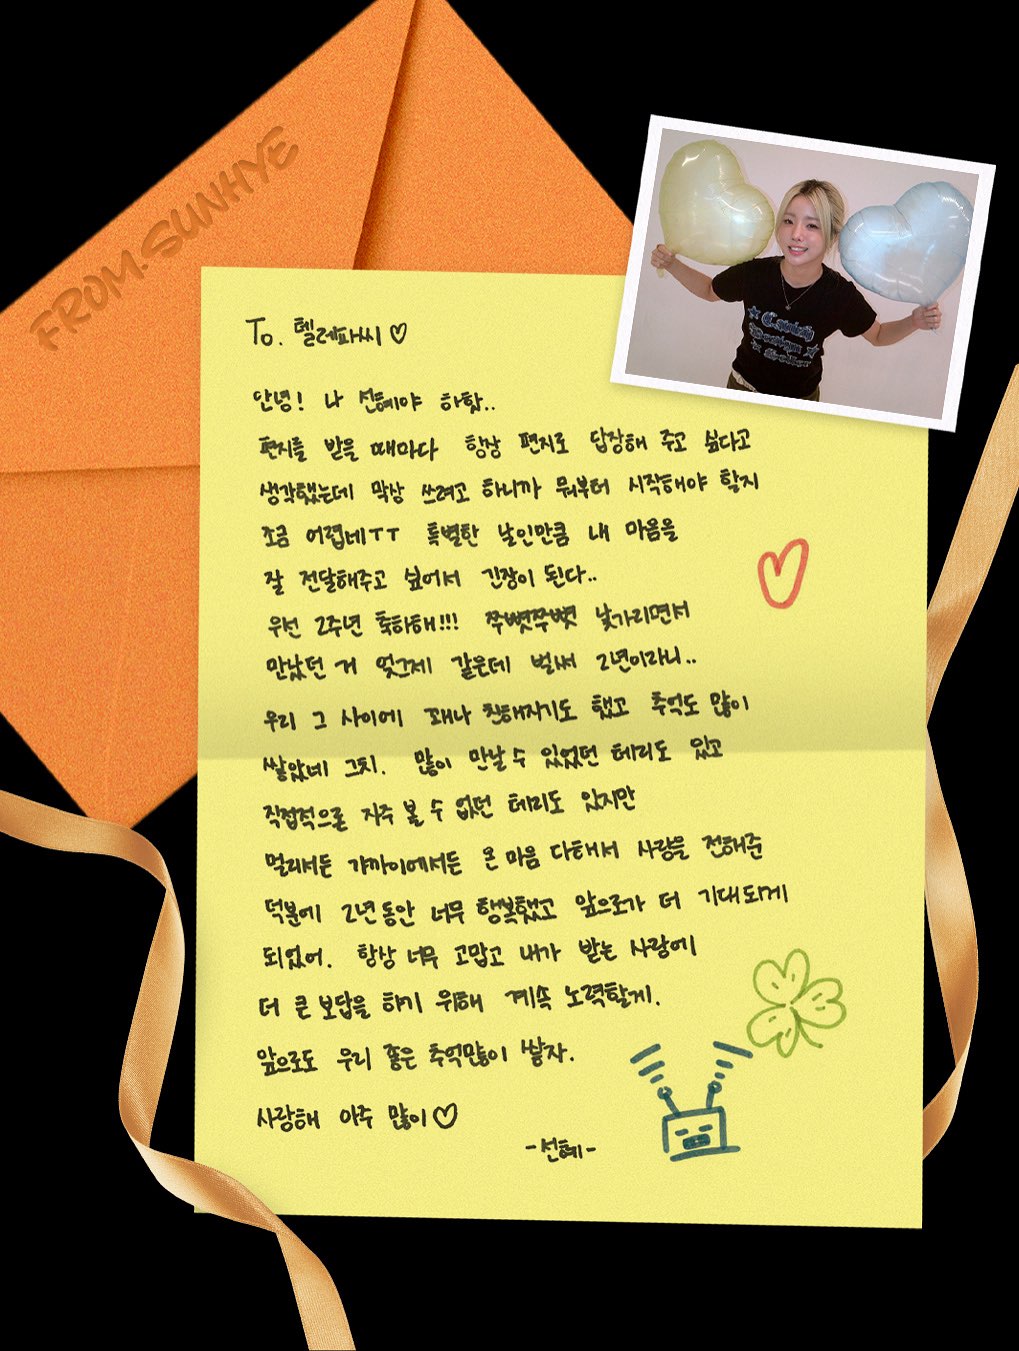 FROM.SUNHYE
To. 텔레파씨♡
안녕! 나 선혜야 하핫..
편지를 받을 때마다 항상 편지로 답장해 주고 싶다고
생각했는데 막상 쓰려고 하니까 뭐부터 시작해야 할지
조금 어렵네ㅜㅜ 특별한 날인만큼 내 마음을
잘 전달해주고 싶어서 긴장이 된다..
우선 2주년 축하해!!! 쭈뼛쭈뼛 낯가리면서
만났던 거 엊그제 같은데 벌써 2년이라니..
우리 그 사이에 꽤나 친해지기도 했고 추억도 많이
쌓았네 그치. 많이 만날 수 있었던 해리도 있고
직접적으로 자주 볼 수 없던 해리도 있지만
멀리서든 가까이에서든 온 마음 다해서 사랑을 전해준
덕분에 2년동안 너무 행복했고 앞으로가 더 기대되게
되었어. 항상 너무 고맙고 내가 받는 사랑에
더 큰 보답을 하기 위해 계속 노력할게.
앞으로도 우리 좋은 추억많이 쌓자.
사랑해 아주 많이♡
-선혜-